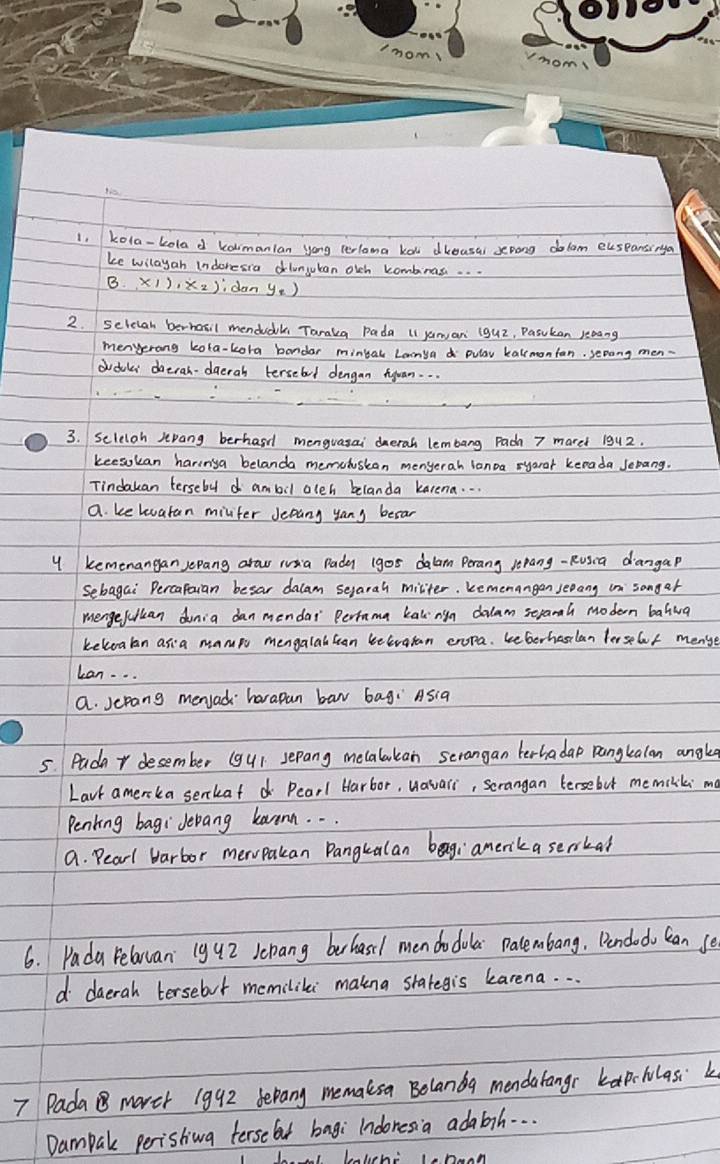 mom
mom
No.
1. kota-kota d kalimantan yang pertama kali dkuasai Jepang dalam ekspansinya
ke wilayah Indonesia ditunjukan oleh kombinasi ...
B. x1), x2); dan y2)
2. setelah berhasil menduduki Taraka Pada 11 januari 1942, Pasukan jepang
menyerang kota-kota bandar minyak Lainya di pulau kalimantan. jepang men-
duduki daerah-daerah tersebut dengan tujuan...
3. setelah Jepang berhasil menguasai daerah lembang Pada 7 maret 1942.
keesokan harinya belanda memutuskan menyerah tanpa syarat kepada Jepang.
Tindakan tersebut di ambil oleh belanda karena...
a. kekuatan militer Jepang yang besar
4 kemenangan jepang atas rusia pada 1905 dalam Perang jepang-Rusia diangap
sebagai Pencapaian besar dalam sejarah militer. kemenangan jepang ini sangat
mengejutkan dunia dan mendai Pertama kalinya dalam sejarah modern bahwa
kekuatan asia mampu mengalahkan kekuatan eropa. keberhasilan tersebut menye
kan...
a. Jepang menjadi harapan baru bagi Asia
5. Pada 7 desember 1941 jepang melakukan serangan terhadap pangkalan angka
Laut amerika serikat di Pearl Harbor, Hawaii, serangan tersebut memiliki ma
Penting bagi Jepang karena...
a. Pearl Harbor merupakan Pangkalan bagi amerika serikat
6. Pada Februari 1942 Jepang berhasil menduduki palembang. Pendudukan se
di daerah tersebut memiliki makna strategis karena...
7 Pada 8 maret 1942 Jepang memaksa Belanda mendatangi kapitulasi k
Dampak peristiwa tersebut bagi Indonesia adalah...